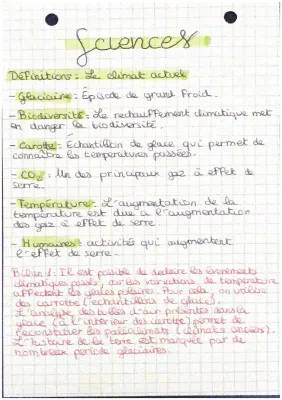 Sciences
Définitions : Le climat actuel
- Glaciaire : Épisode de grand froid.
- Biodiversité : Le rechauffement climatique met
en danger la biodiversité.
- Carotte : Échantillon de glace qui permet de
connaître les températures passées.
- CO2 : Un des principaux gaz à effet de
serre.
- Température : L'augmentation de la
température est due a l'augmentation
des gaz à effet de serre.
- Humaines : activités qui augmentent
l'effet de serre.
Bilan 1 : Il est possible de les évènements
climatiques passés, car les variations de température
affectent les glaces polaires. Pour cela, on
des carottes (echantillons de glace).
L'analyse des bulles d'air présentes dans la
glace (à l'intérieur des carotte) permet de
les paléoclimats (climats anciens).
L'histoire de la terre est marquée par de
nombreux période glaciaires.